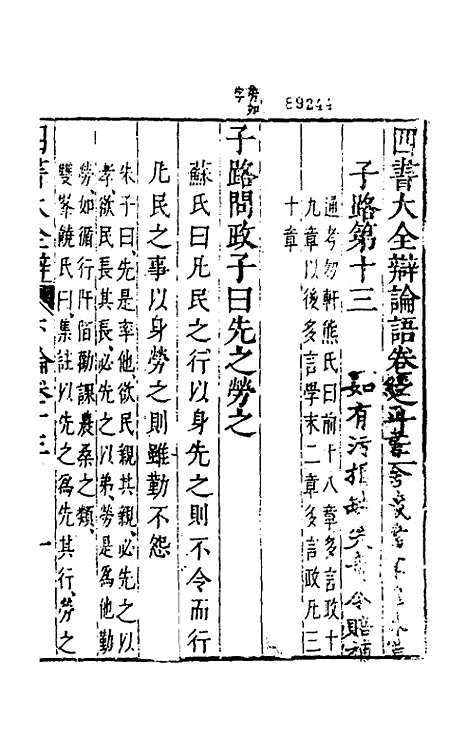 四書大全辯論語卷之十三
子路第十三
如有污損缺失
令賠補
通考勿軒熊氏曰前十八章多言政十
九章以後多言學末二章多言政凡三
十章
89244
勞如
字
子路問政子曰先之勞之
蘇氏曰凡民之行以身先之則不令而行
凡民之事以身勞之則雖勤不怨
朱子曰先是率他欲民親其親必先之以
孝欲民長其長必先之以弟勞是為他勤
勞如循行阡陌勸課農桑之類
雙峯饒氏曰集註以先之為先其行勞之
四書大全辯 下論卷十三 一